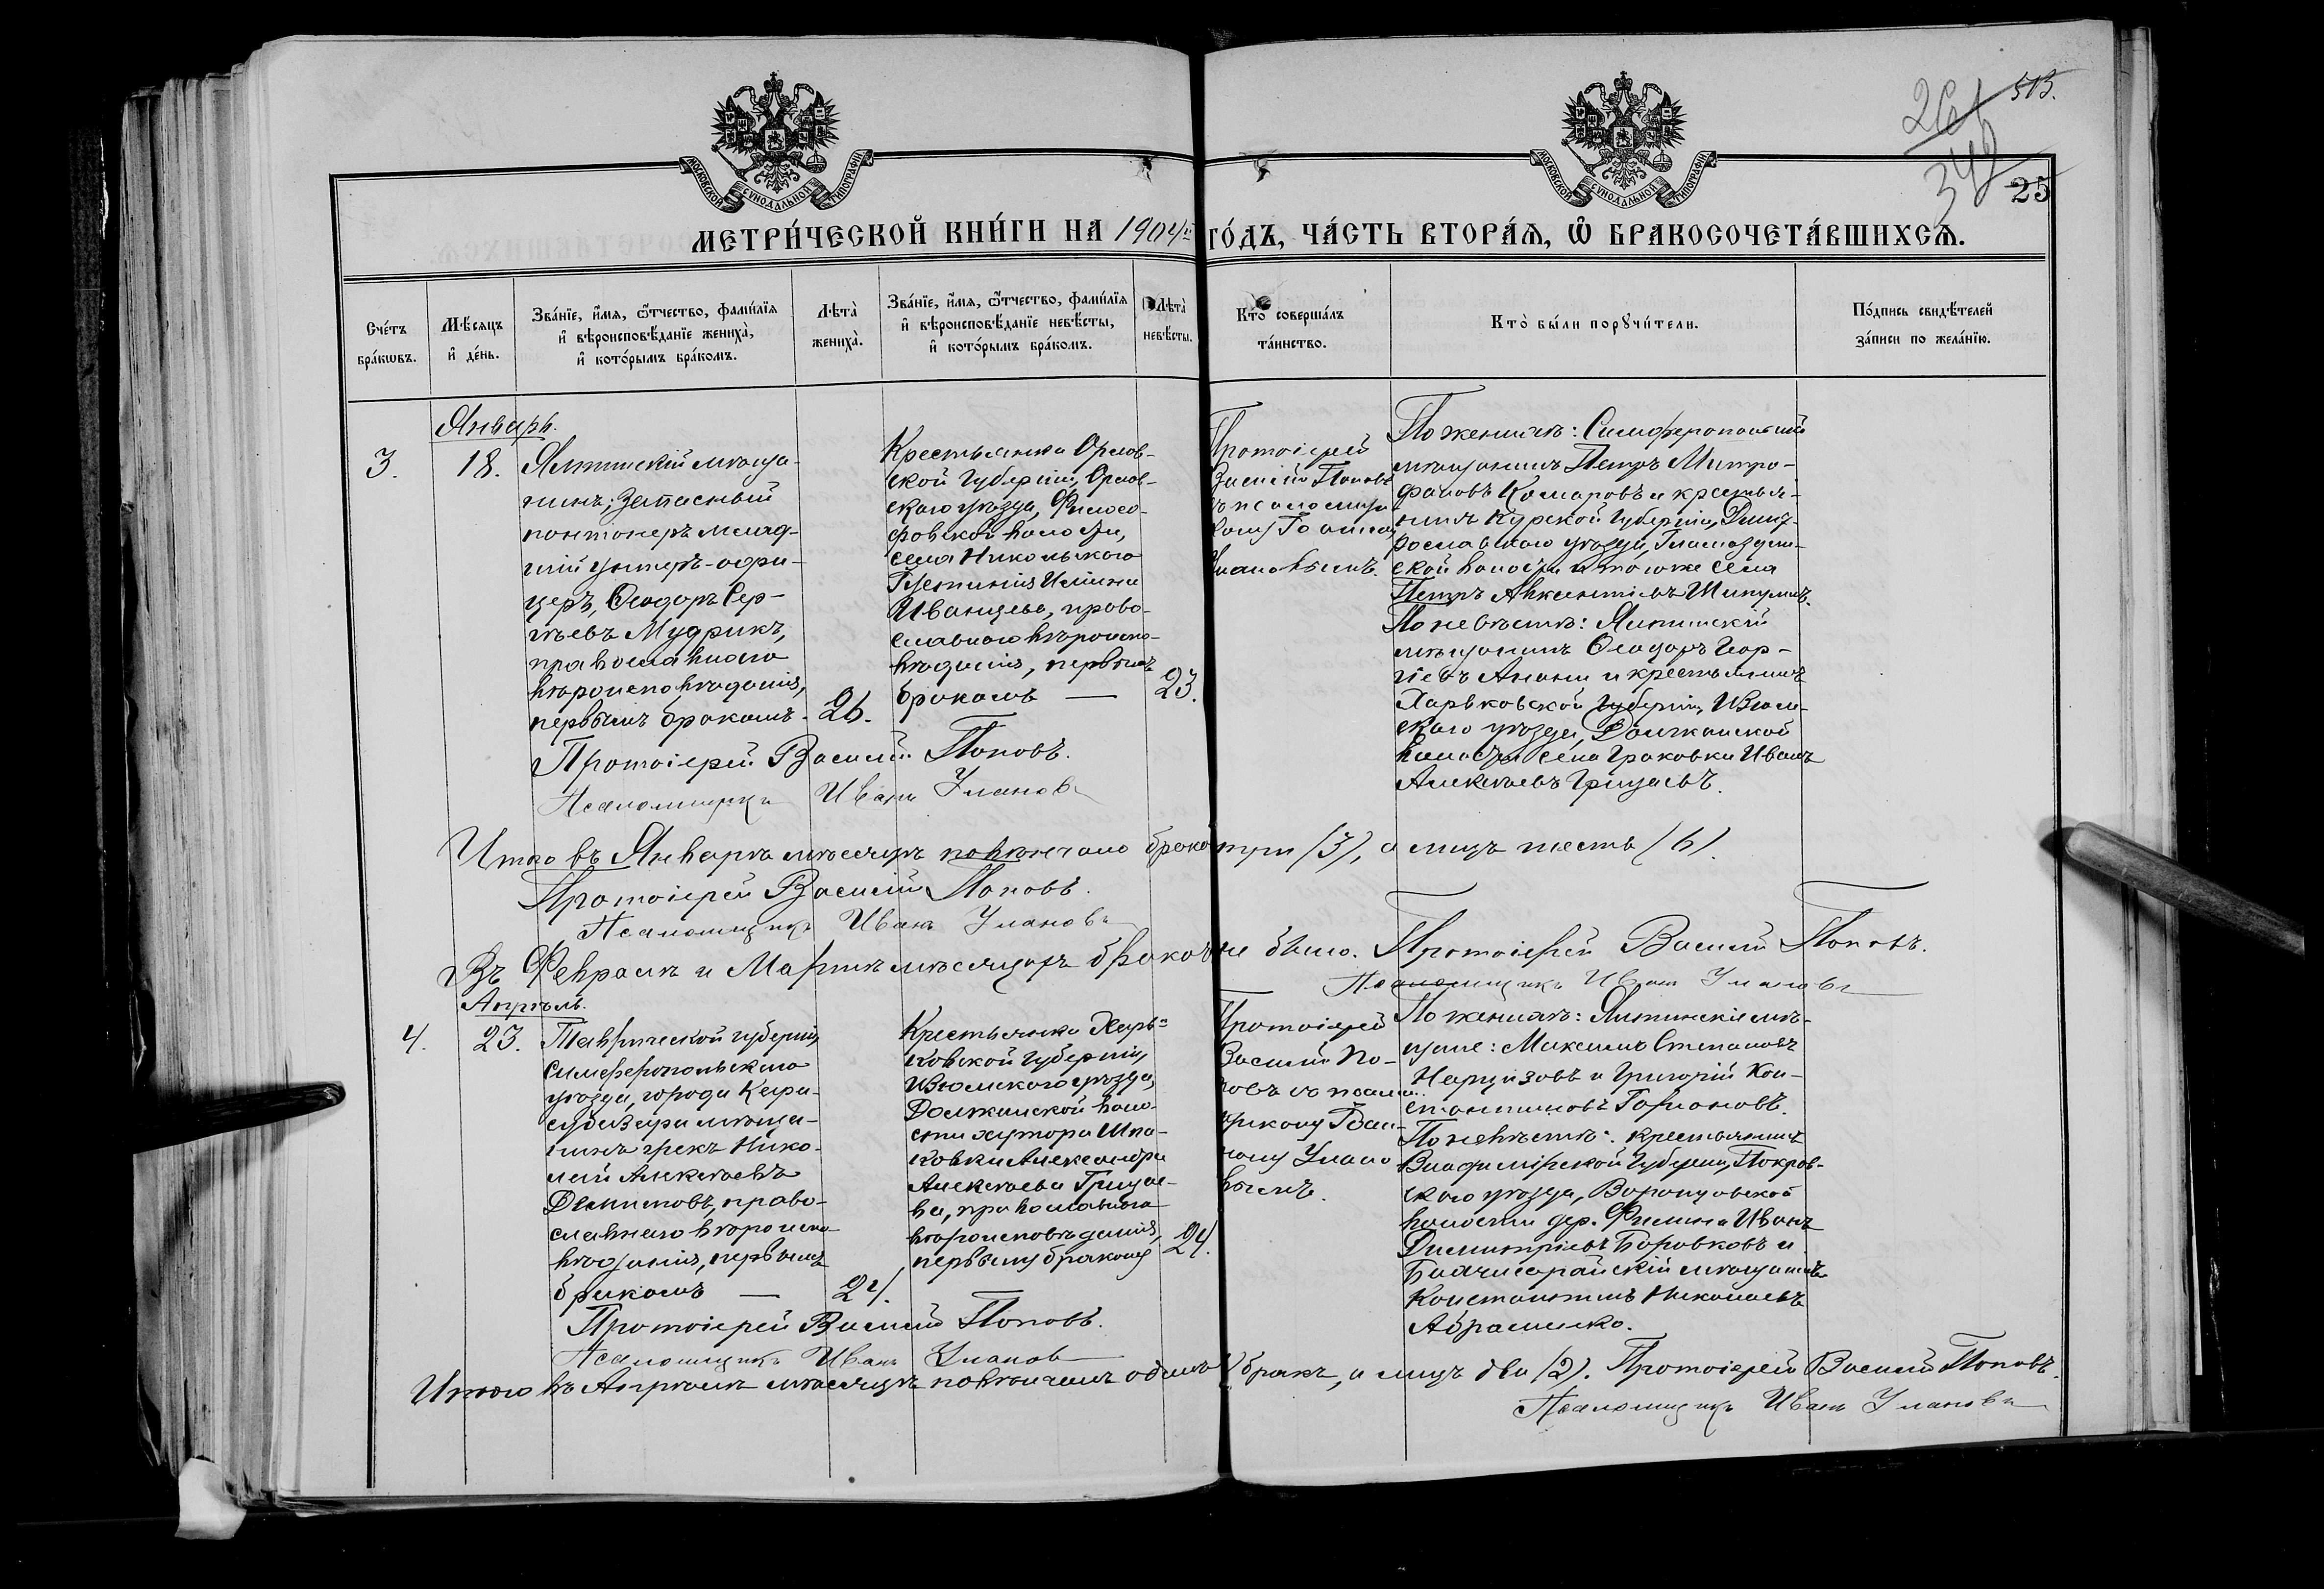 513.
261
348
25
МОСКОВСКОЙ СУНОДАЛЬНОЙ ТИПОГРАФІИ
МОСКОВСКОЙ СУНОДАЛЬНОЙ ТИПОГРАФІИ
МЕТРИ́ЧЕСКОЙ КНИ́ГИ НА 1904й ГО́ДЪ, ЧА́СТЬ ВТОРА́Я, Ѡ҆ БРАКОСОЧЕТА́ВШИХСѦ.
Сче́тъ
бра́кѡвъ.
Мѣ́сяцъ
и҆ де́нь.
Зва́нїе, и҆́мя, ѻ҆́тчество, фами́лїя
и҆ вѣроисповѣ́данїе жениха̀,
и҆ кото́рымъ бра́комъ.
Лѣта̀
жениха̀.
Зва́нїе, и҆́мя, ѻ҆́тчество, фами́лїя
и҆ вѣроисповѣ́данїе невѣ́сты,
и҆ кото́рымъ бра́комъ.
Лѣта̀
невѣ́сты.
Кто̀ соверша́лъ
та́инство.
Кто̀ бы́ли порꙋчи́тели.
По́дпись свидѣ́телей
за́писи по жела́нїю.
Январь.
3.
18.
Ялтинскій мѣща-
нинъ; запасный
понтонеръ млад-
шій унтеръ-офи-
церъ, Ѳеодоръ Сер-
гѣевъ Мудрикъ,
православнаго
вѣроисповѣданія,
первымъ бракомъ.
26.
Крестьянка Орлов-
ской губерніи, Орлов-
скаго уѣзда, Философ-
овской волости,
села Никольскаго
Иванцева, право-
славнаго вѣроиспо-
вѣданія, первымъ
бракомъ —
23.
Протоіерей
Василій Поповъ
съ псаломщи
комъ Іоанном
Улановымъ.
По женихѣ: Симферопольскій
мѣщанинъ Петръ Митро-
фановъ Комаровъ и крестья-
нинъ Курской губерніи, Дми-
ской волости и того же села
Петръ Авксентіевъ Шикулинъ.
По невѣстѣ: Ялтинскій
мѣщанинъ Ѳеодоръ Геор-
гіевъ Анани и крестьянинъ
Харьковской губерніи, Изюм-
скаго уѣзда, Должанской
волости села Граковки Иванъ
Алексѣевъ Грицаевъ.
Протоіерей Василій Поповъ.
Псаломщикъ Иванъ Улановъ
Итого въ Январѣ мѣсяцѣ повѣнчано браковъ три (3), а лицъ шесть (6).
Протоіерей Василій Поповъ.
Псаломщикъ Иванъ Улановъ
Въ Февралѣ и Мартѣ мѣсяцахъ браковъ не было. Протоіерей Василій Поповъ.
Псаломщикъ Иванъ Улановъ
Апрѣль.
4.
23.
Таврической губерніи
Симферопольскаго
уѣзда, города Кара-
субазара мѣща-
нинъ грекъ Нико-
лай Алексѣевъ
Демистовъ, право-
славнаго вѣроиспо-
вѣданія, первымъ
бракомъ —
24.
Крестьянка Харь-
ковской губерніи,
Изюмскаго уѣзда,
Должанской воло-
сти хутора Шпа-
ковки Александра
Алексѣева Грицае-
ва, православнаго
вѣроисповѣданія,
первымъ бракомъ
24.
Протоіерей
Василій По-
повъ съ псалом
щикомъ Іоан-
номъ Улано
вымъ.
По женихѣ: Ялтинскіе мѣ-
щане: Максимъ Степановъ
Нарцизовъ и Григорій Кон-
стантиновъ Гофановъ.
По невѣстѣ: крестьянинъ
Владимірской губерніи, Покров-
скаго уѣзда, Воронцовской
волости дер. Филина Иванъ
Димитріевъ Боровковъ и
Бахчисарайскій мѣщанинъ
Константинъ Николаевъ
Абраменко.
Протоіерей Василій Поповъ.
Псаломщикъ Иванъ Улановъ
Итого въ Апрѣлѣ мѣсяцѣ повѣнчанъ одинъ бракъ, а лицъ два (2). Протоіерей Василій Поповъ.
Псаломщикъ Иванъ Улановъ